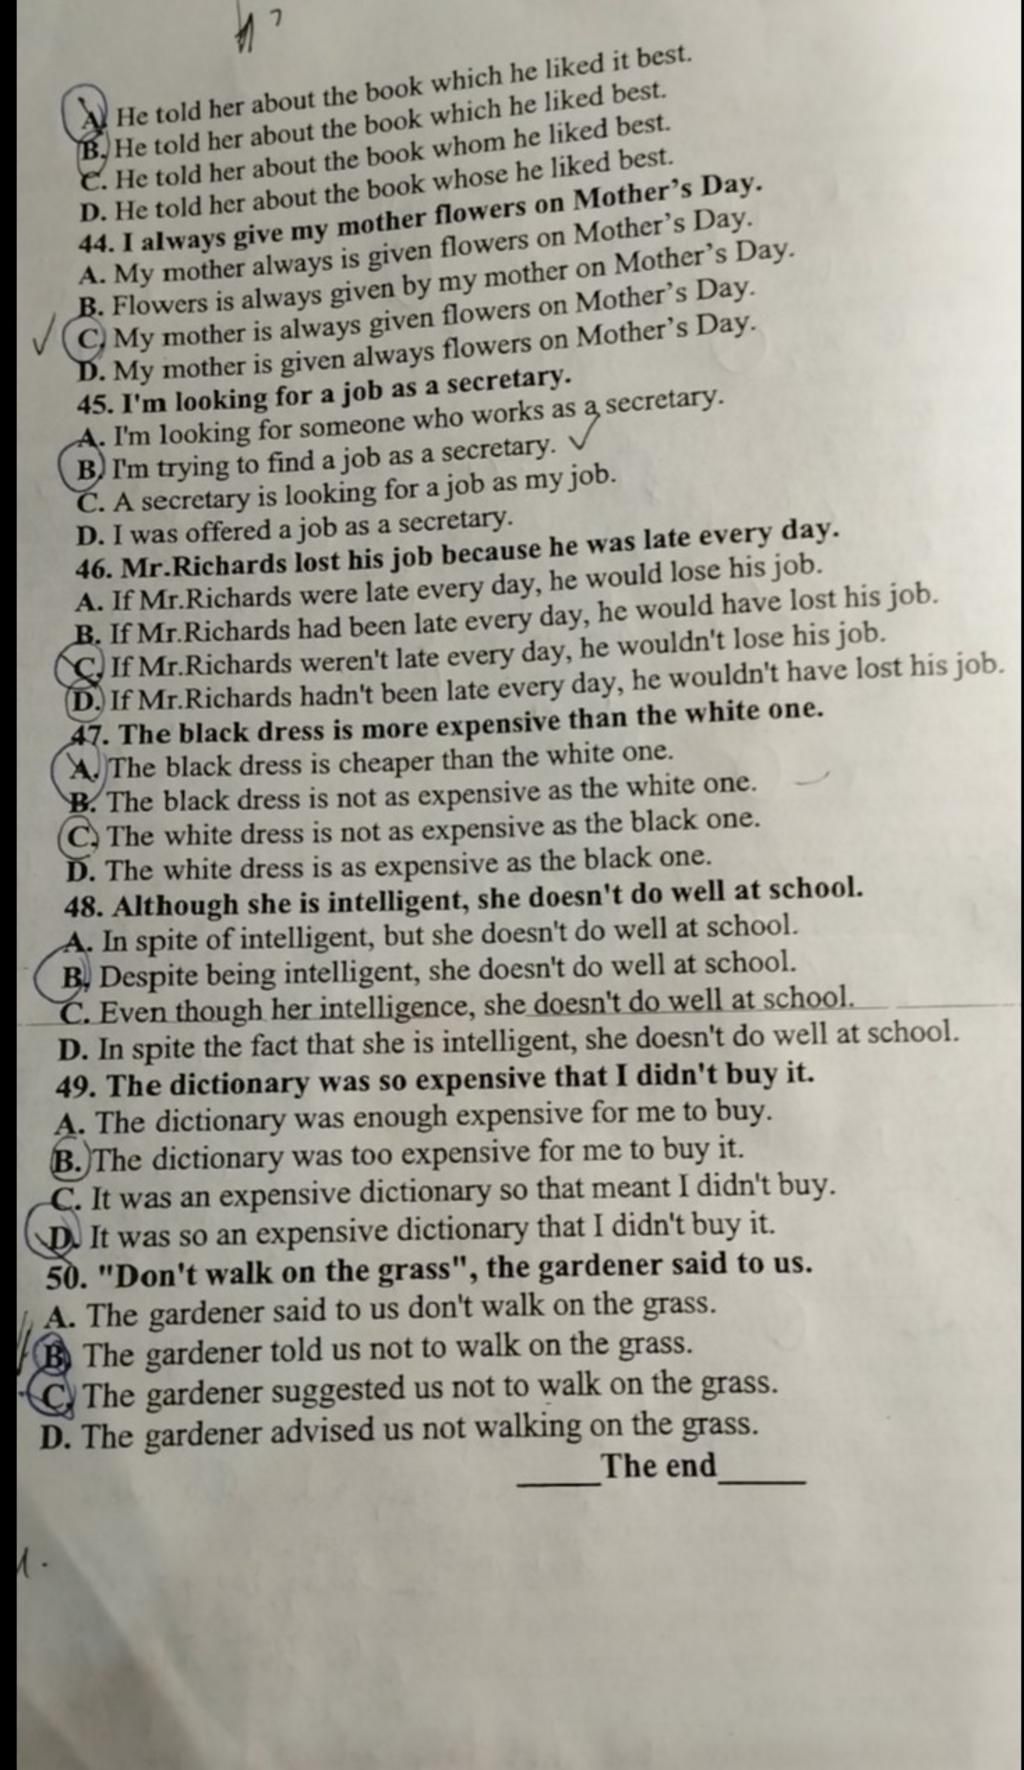 A. He told her about the book which he liked it best.
B. He told her about the book which he liked best.
C. He told her about the book whom he liked best.
D. He told her about the book whose he liked best.
44. I always give my mother flowers on Mother's Day.
A. My mother always is given flowers on Mother's Day.
B. Flowers is always given by my mother on Mother's Day.
C. My mother is always given flowers on Mother's Day.
D. My mother is given always flowers on Mother's Day.
45. I'm looking for a job as a secretary.
A. I'm looking for someone who works as a secretary.
B. I'm trying to find a job as a secretary.
C. A secretary is looking for a job as my job.
D. I was offered a job as a secretary.
46. Mr.Richards lost his job because he was late every day.
A. If Mr.Richards were late every day, he would lose his job.
B. If Mr.Richards had been late every day, he would have lost his job.
C. If Mr.Richards weren't late every day, he wouldn't lose his job.
D. If Mr.Richards hadn't been late every day, he wouldn't have lost his job.
47. The black dress is more expensive than the white one.
A. The black dress is cheaper than the white one.
B. The black dress is not as expensive as the white one.
C. The white dress is not as expensive as the black one.
D. The white dress is as expensive as the black one.
48. Although she is intelligent, she doesn't do well at school.
A. In spite of intelligent, but she doesn't do well at school.
B. Despite being intelligent, she doesn't do well at school.
C. Even though her intelligence, she doesn't do well at school.
D. In spite the fact that she is intelligent, she doesn't do well at school.
49. The dictionary was so expensive that I didn't buy it.
A. The dictionary was enough expensive for me to buy.
B. The dictionary was too expensive for me to buy it.
C. It was an expensive dictionary so that meant I didn't buy.
D. It was so an expensive dictionary that I didn't buy it.
50. "Don't walk on the grass", the gardener said to us.
A. The gardener said to us don't walk on the grass.
B. The gardener told us not to walk on the grass.
C. The gardener suggested us not to walk on the grass.
D. The gardener advised us not walking on the grass.
_____The end_____